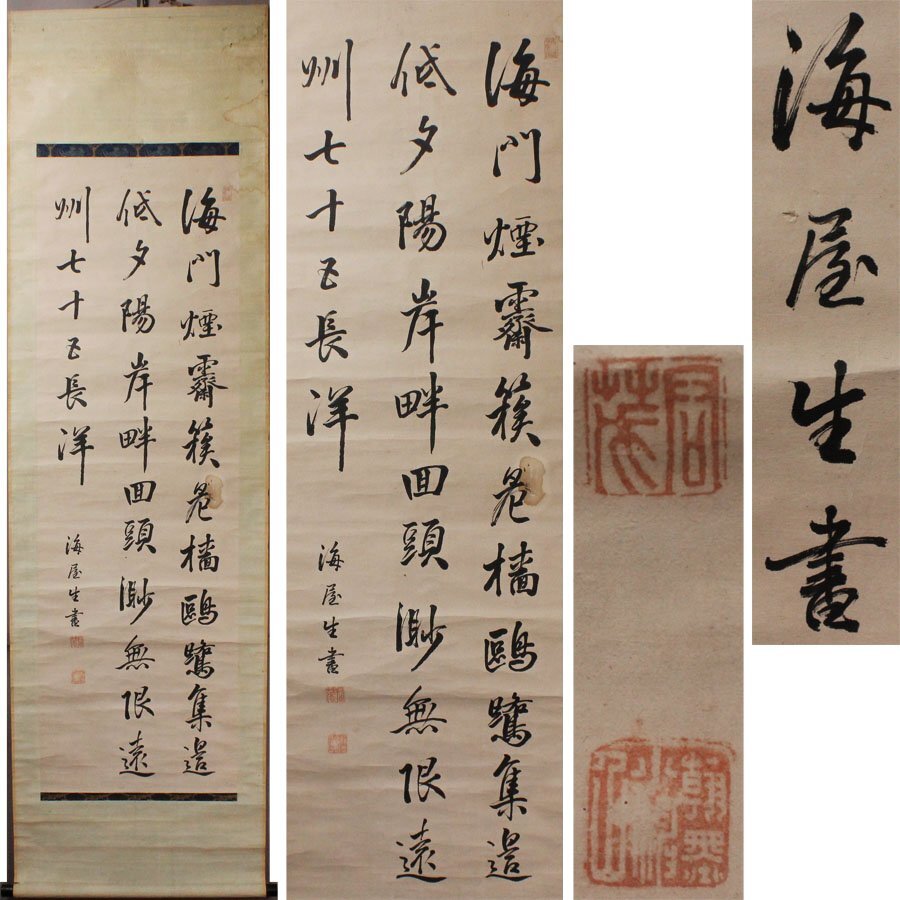 海門煙霽簇危檣鷗鷺集邉
低夕陽岸畔回頭渺無限遠
州七十五長洋
海屋生書
海門煙霽簇危檣鷗鷺集邉
低夕陽岸畔回頭渺無限遠
州七十五長洋
海屋生書
君茂
海屋生書